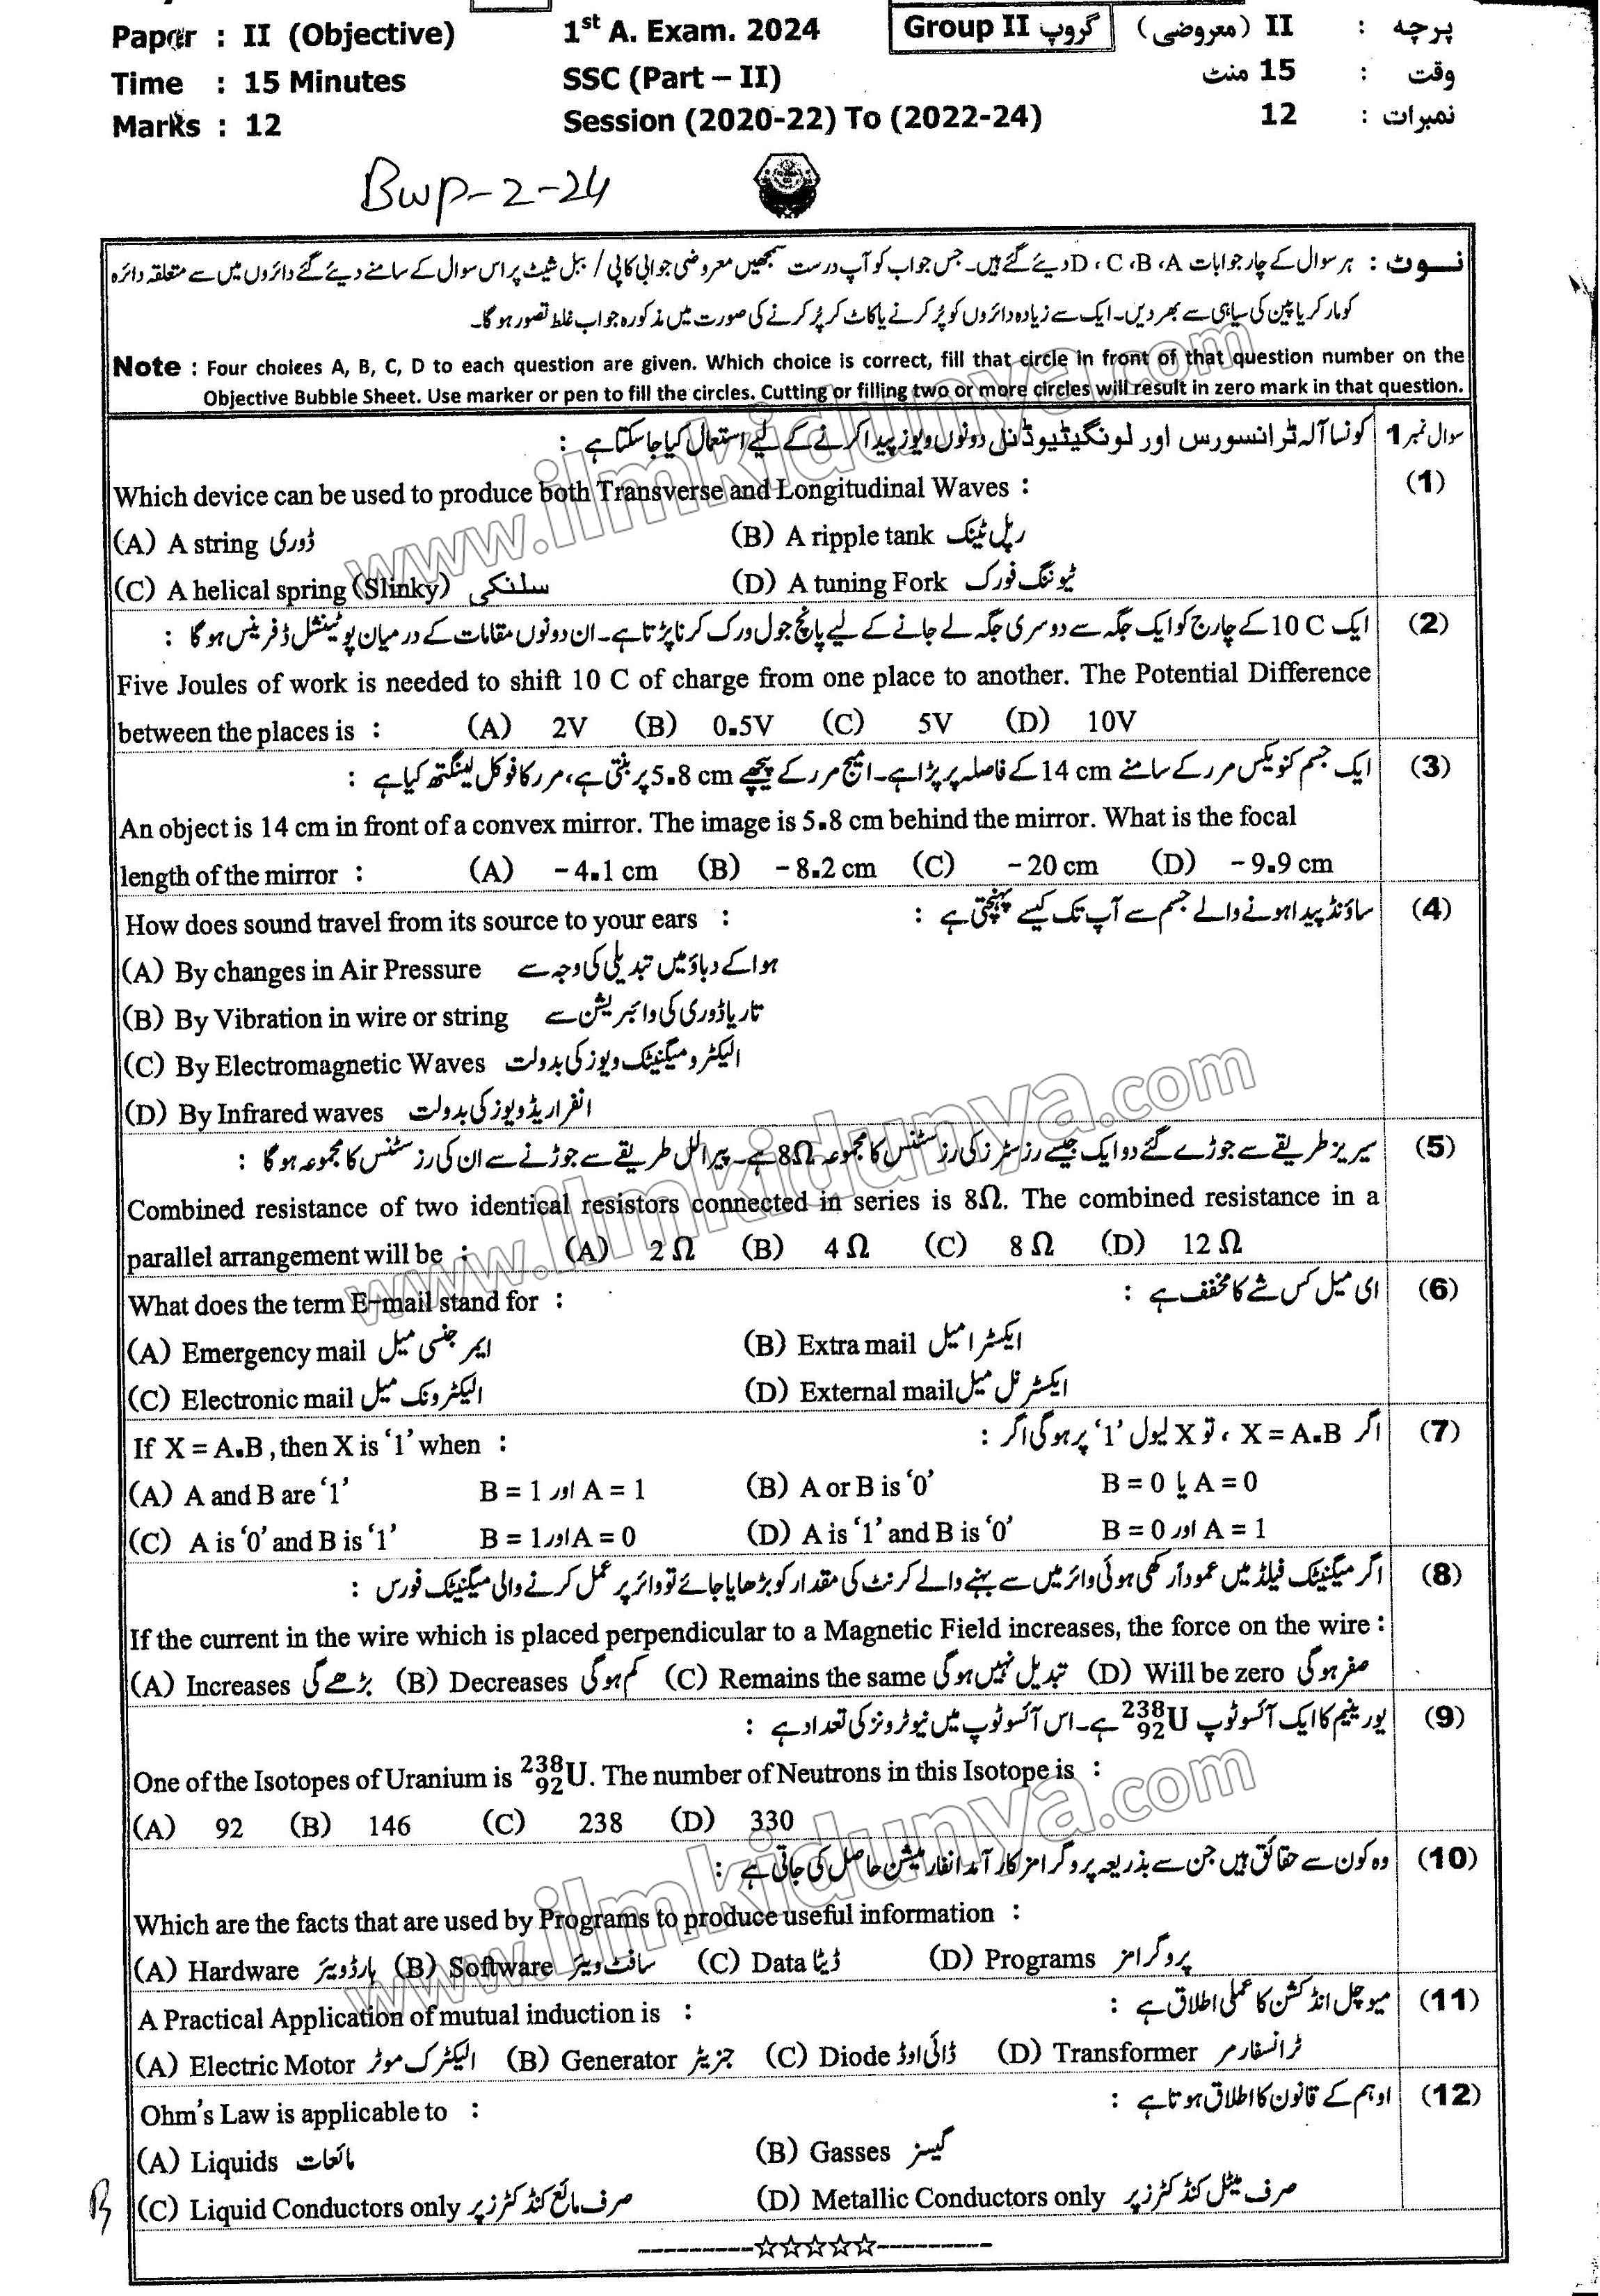 Paper : II (Objective) 1st A. Exam. 2024 Group II گروپ پرچہ : II (معروضی)
Time : 15 Minutes SSC (Part – II) وقت : 15 منٹ
Marks : 12 Session (2020-22) To (2022-24) نمبرات : 12
BWP-2-24
نوٹ : ہر سوال کے چار جوابات A، B، C، D دیئے گئے ہیں۔ جس جواب کو آپ درست سمجھیں معروضی جوابی کاپی / ببل شیٹ پر اس سوال کے سامنے دیئے گئے دائروں میں سے متعلقہ دائرہ
کو مارکر یا پین کی سیاہی سے بھر دیں۔ ایک سے زیادہ دائروں کو پُر کرنے یا کاٹ کر پُر کرنے کی صورت میں مذکورہ جواب غلط تصور ہوگا۔
Note : Four choices A, B, C, D to each question are given. Which choice is correct, fill that circle in front of that question number on the
Objective Bubble Sheet. Use marker or pen to fill the circles. Cutting or filling two or more circles will result in zero mark in that question.
سوال نمبر 1 کونسا آلہ ٹرانسورس اور لونگیٹیوڈنل دونوں ویوز پیدا کرنے کے لیے استعمال کیا جا سکتا ہے :
(1)
Which device can be used to produce both Transverse and Longitudinal Waves :
(A) A string ڈوری (B) A ripple tank رپل ٹینک
(C) A helical spring (Slinky) سلنکی (D) A tuning Fork ٹیوننگ فورک
(2) ایک 10 C کے چارج کو ایک جگہ سے دوسری جگہ لے جانے کے لیے پانچ جول ورک کرنا پڑتا ہے۔ ان دونوں مقامات کے درمیان پوٹینشل ڈفرینس ہوگا :
Five Joules of work is needed to shift 10 C of charge from one place to another. The Potential Difference
between the places is : (A) 2V (B) 0.5V (C) 5V (D) 10V
(3) ایک جسم کنویکس مرر کے سامنے 14 cm کے فاصلہ پر پڑا ہے۔ امیج مرر کے پیچھے 5.8 cm پر بنتی ہے، مرر کا فوکل لینگتھ کیا ہے :
An object is 14 cm in front of a convex mirror. The image is 5.8 cm behind the mirror. What is the focal
length of the mirror : (A) - 4.1 cm (B) - 8.2 cm (C) - 20 cm (D) - 9.9 cm
(4) ساؤنڈ پیدا ہونے والے جسم سے آپ تک کیسے پہنچتی ہے :
How does sound travel from its source to your ears :
(A) By changes in Air Pressure ہوا کے دباؤ میں تبدیلی کی وجہ سے
(B) By Vibration in wire or string تار یا ڈوری کی وائبریشن سے
(C) By Electromagnetic Waves الیکٹرومیگنیٹک ویوز کی بدولت
(D) By Infrared waves انفراریڈ ویوز کی بدولت
(5) سیریز طریقے سے جوڑے گئے دو ایک جیسے رزسٹرز کی رزسٹنس کا مجموعہ 8Ω ہے۔ پیرالل طریقے سے جوڑنے سے ان کی رزسٹنس کا مجموعہ ہوگا :
Combined resistance of two identical resistors connected in series is 8Ω. The combined resistance in a
parallel arrangement will be : (A) 2 Ω (B) 4 Ω (C) 8 Ω (D) 12 Ω
(6) ای میل کس شے کا مخفف ہے :
What does the term E-mail stand for :
(A) Emergency mail ایمرجنسی میل (B) Extra mail ایکسٹرا میل
(C) Electronic mail الیکٹرونک میل (D) External mail ایکسٹرنل میل
(7) اگر X = A.B ، تو X لیول '1' پر ہوگی اگر :
If X = A.B , then X is '1' when :
(A) A and B are '1' A = 1 اور B = 1 (B) A or B is '0' A = 0 یا B = 0
(C) A is '0' and B is '1' A = 0 اور B = 1 (D) A is '1' and B is '0' A = 1 اور B = 0
(8) اگر میگنیٹک فیلڈ میں عموداً رکھی ہوئی وائر میں سے بہنے والے کرنٹ کی مقدار کو بڑھایا جائے تو وائر پر عمل کرنے والی میگنیٹک فورس :
If the current in the wire which is placed perpendicular to a Magnetic Field increases, the force on the wire :
(A) Increases بڑھے گی (B) Decreases کم ہوگی (C) Remains the same تبدیل نہیں ہوگی (D) Will be zero صفر ہوگی
(9) یورینیم کا ایک آئسوٹوپ ²³⁸₉₂U ہے۔ اس آئسوٹوپ میں نیوٹرونز کی تعداد ہے :
One of the Isotopes of Uranium is ²³⁸₉₂U. The number of Neutrons in this Isotope is :
(A) 92 (B) 146 (C) 238 (D) 330
(10) وہ کون سے حقائق ہیں جن سے بذریعہ پروگرامز کارآمد انفارمیشن حاصل کی جاتی ہے :
Which are the facts that are used by Programs to produce useful information :
(A) Hardware ہارڈویئر (B) Software سافٹ ویئر (C) Data ڈیٹا (D) Programs پروگرامز
(11) میوچل انڈکشن کا عملی اطلاق ہے :
A Practical Application of mutual induction is :
(A) Electric Motor الیکٹرک موٹر (B) Generator جنریٹر (C) Diode ڈائی اوڈ (D) Transformer ٹرانسفارمر
(12) اوہم کے قانون کا اطلاق ہوتا ہے :
Ohm's Law is applicable to :
(A) Liquids مائعات (B) Gasses گیسز
(C) Liquid Conductors only صرف مائع کنڈکٹرز پر (D) Metallic Conductors only صرف میٹل کنڈکٹرز پر
www.ilmkidunya.com
www.ilmkidunya.com
www.ilmkidunya.com